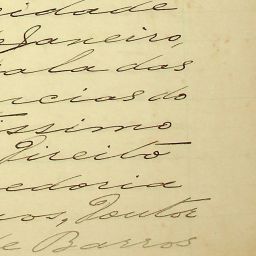 cidade
Janeiro,
sala das
ncias do
issimo
Direito
edoria
nos, Doutor
de Barros